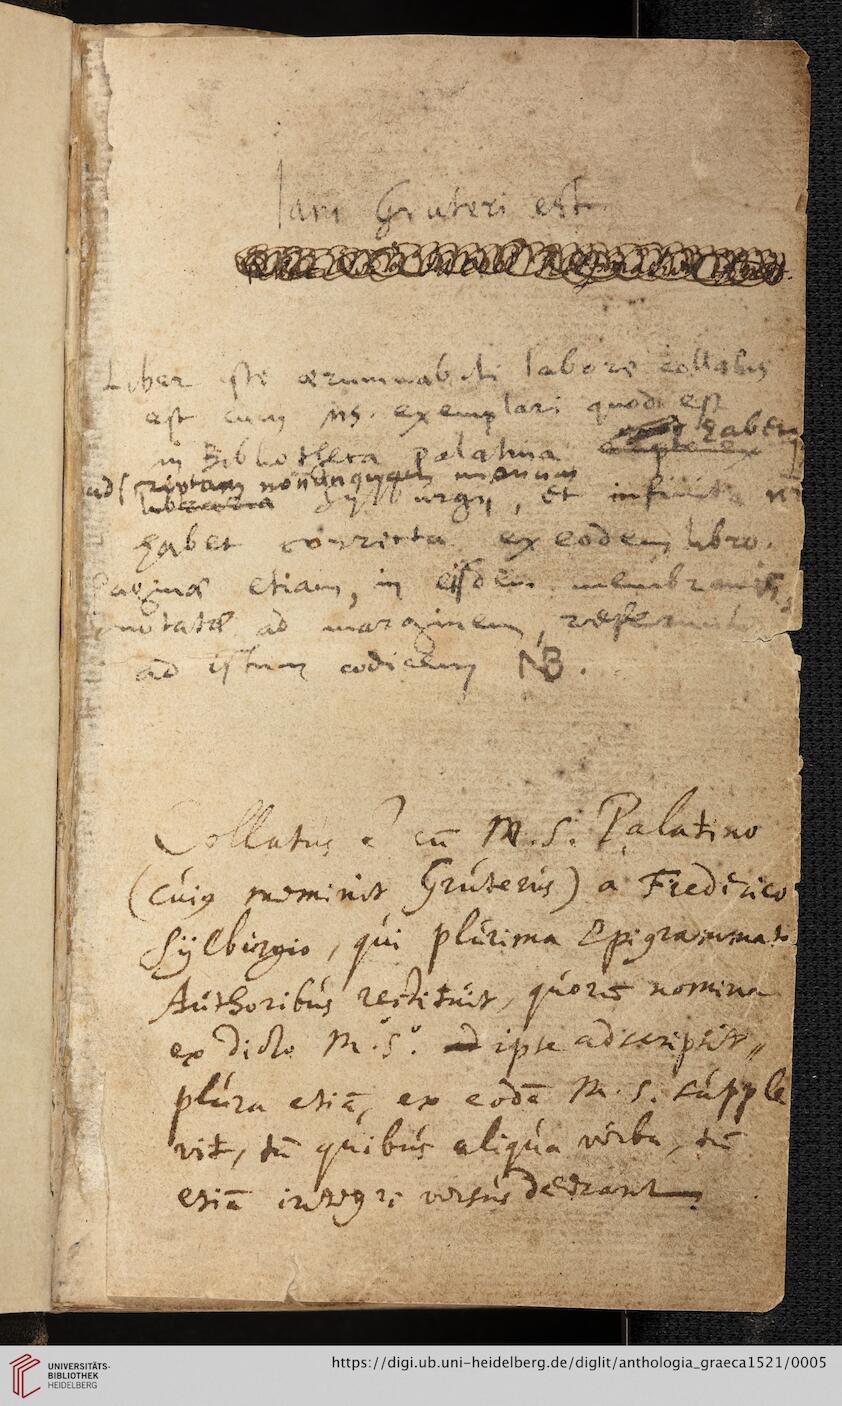 Iani Gruteri est
Liber iste ærumnabili labore collatus
est cum ms. exemplari quod est
in Bibliotheca palatina habetq
adscriptam nonnunquam manum
Sylburgij, et infinita
habet correcta ex eodem libro.
Paginæ etiam, in eisdem membranis,
notatæ ad marginem, referuntur
ad istum codicem NB.
Collatus ē cū M.S. Palatino
(cuiq meminit Gruterus) a Frederico
Sylburgio, qui plurima Epigrammata
Authoribus restituit, quorū nomina
ex dicto M.S.º ipse adscripsit,,
plura etiā, ex eodē M.S. supple
vit, tū quibus aliqua verba, tū
etiā integri versus deerant
UNIVERSITÄTS-
BIBLIOTHEK
HEIDELBERG
https://digi.ub.uni-heidelberg.de/diglit/anthologia_graeca1521/0005